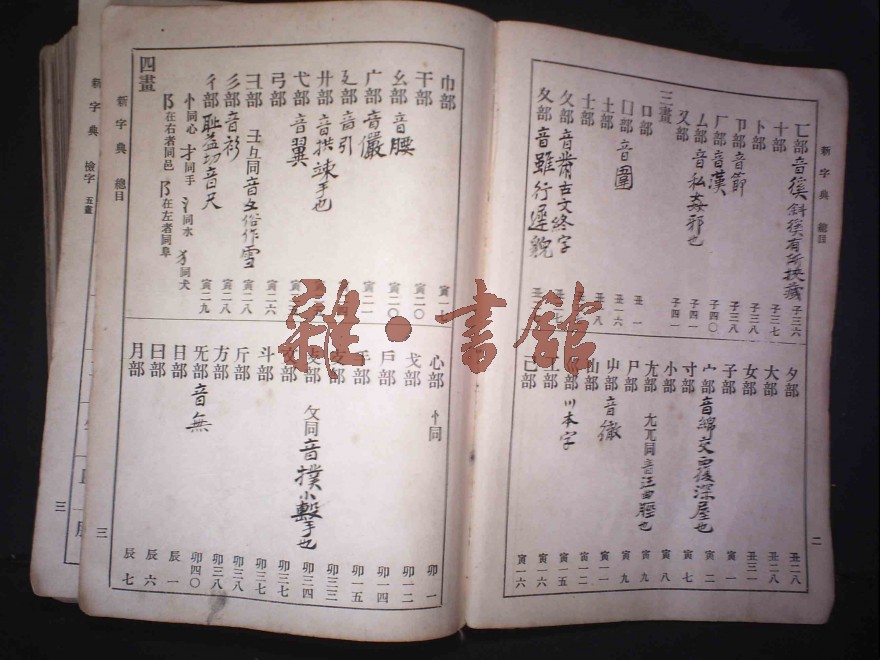 新字典 總目
匸部 音徯 斜徯有所挾藏 子三六
十部 子三七
卜部 子三八
卩部 音節 子三八
厂部 音漢 子四〇
厶部 音私 姦邪也 子四一
又部 子四一
三畫
口部 丑一
囗部 音圍 丑一六
土部
士部
夂部
夊部 音雖 行遲貌
夕部 丑二八
大部 丑二八
女部 丑三一
子部 寅一
宀部 音綿 交西後深屋也 寅二
寸部 寅七
小部 寅八
尢部 尣兀同 寅九
尸部 寅九
屮部 音徹 寅一一
山部 寅一二
巛部 川本字 寅一五
工部 寅一六
己部 寅一六
二
巾部
干部 寅二〇
幺部 音腰 寅二〇
广部 音儼 寅二一
廴部 音引
廾部 音拱 竦手也
弋部 音翼
弓部 寅二六
彐部 彑同 寅二八
彡部 音衫 寅二八
彳部 音尺 寅二九
忄同心 扌同手 氵同水 犭同犬
阝在右者同邑 阝在左者同阜
四畫
新字典 總目
心部 忄同 卯一
戈部 卯一二
戶部 卯一四
手部 卯一五
支部 卯三三
攴部 攵同 音撲 小擊也 卯三四
文部 卯三七
斗部 卯三七
斤部 卯三八
方部 卯三八
旡部 音無 卯四〇
日部 辰一
曰部 辰六
月部 辰七
三
新字典 檢字 五畫
三
雜·書館